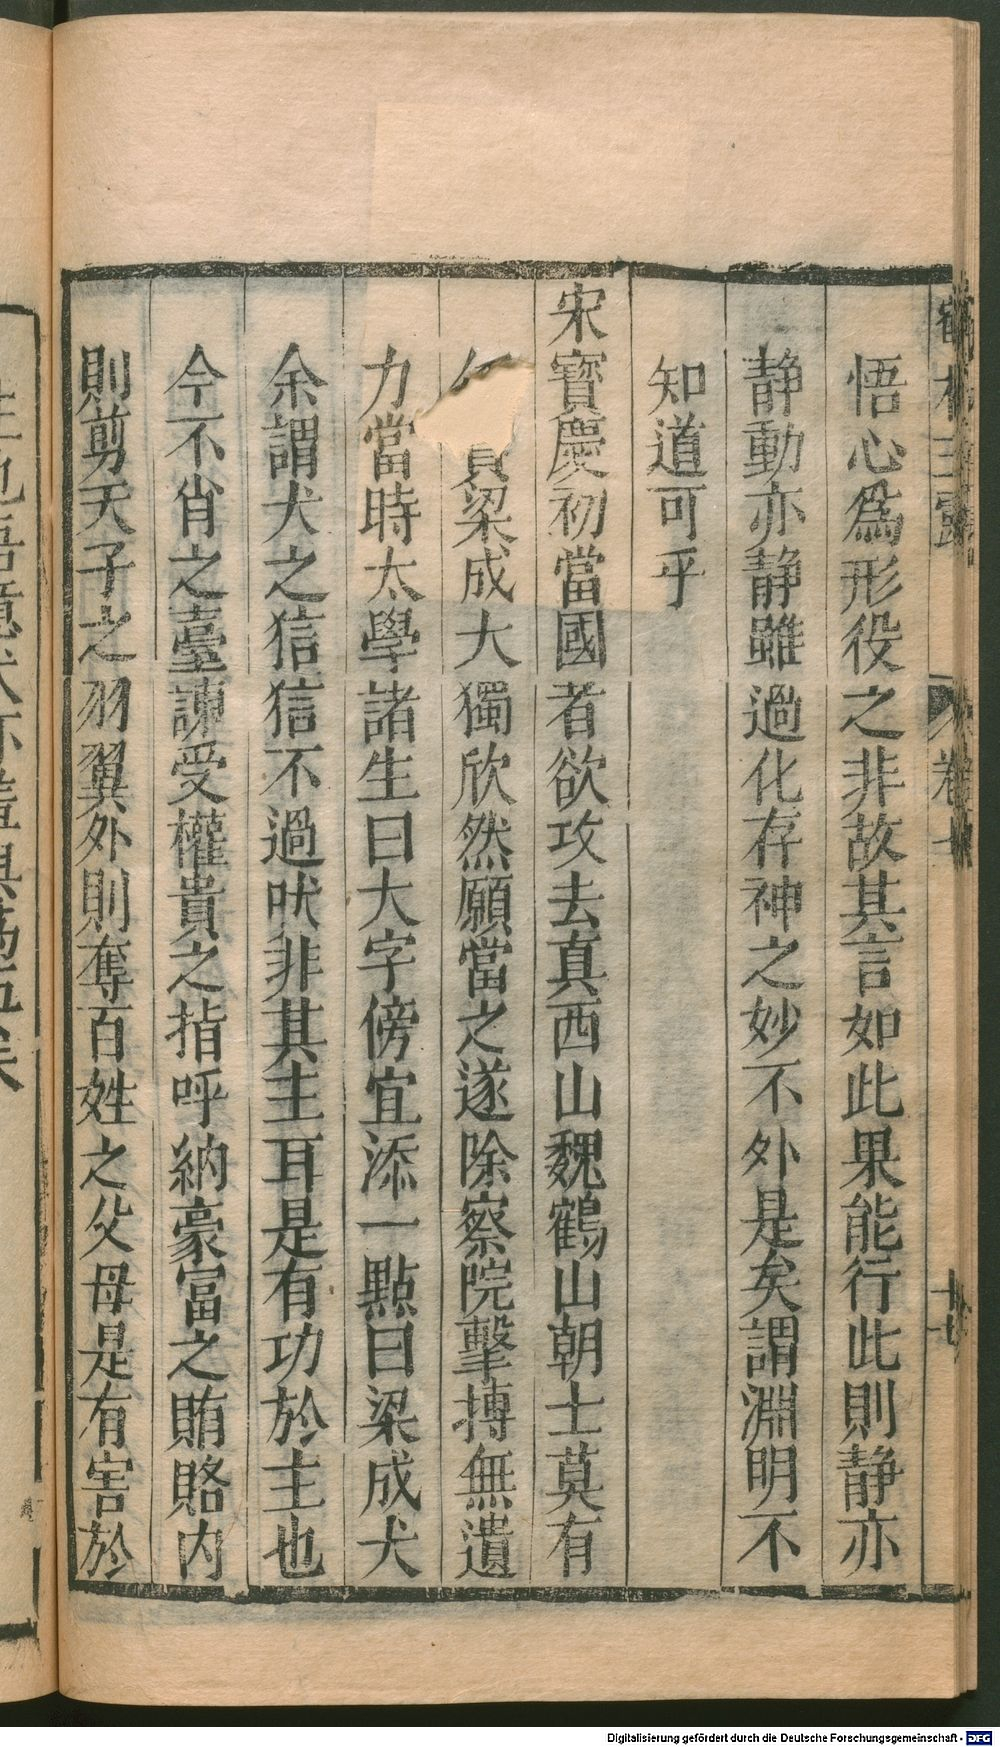 悟心爲形役之非故其言如此果能行此則静亦
静動亦静雖過化存神之妙不外是矣謂淵明不
知道可乎
宋寶慶初當國者欲攻去真西山魏鶴山朝士莫有
梁成大獨欣然願當之遂除察院擊搏無遺
力當時太學諸生曰大字傍宜添一點曰梁成犬
余謂犬之狺狺不過吠非其主耳是有功於主也
今不肖之臺諫受權貴之指呼納豪富之賄賂内
則剪天子之羽翼外則奪百姓之父母是有害於
Digitalisierung gefördert durch die Deutsche Forschungsgemeinschaft - DFG